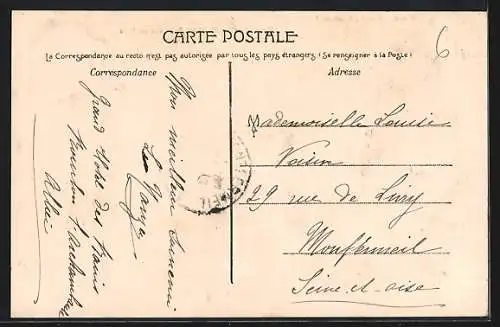 CARTE POSTALE
La Correspondance au recto n'est pas autorisée par tous les pays étrangers (Se renseigner à la Poste)
Correspondance
Adresse
6
Mon meilleur souvenir
Grand Hotel des Bains
Bourbon l'Archambault
Allier
Mademoiselle Louise
Voisin
29 rue de Livry
Montfermeil
Seine et oise